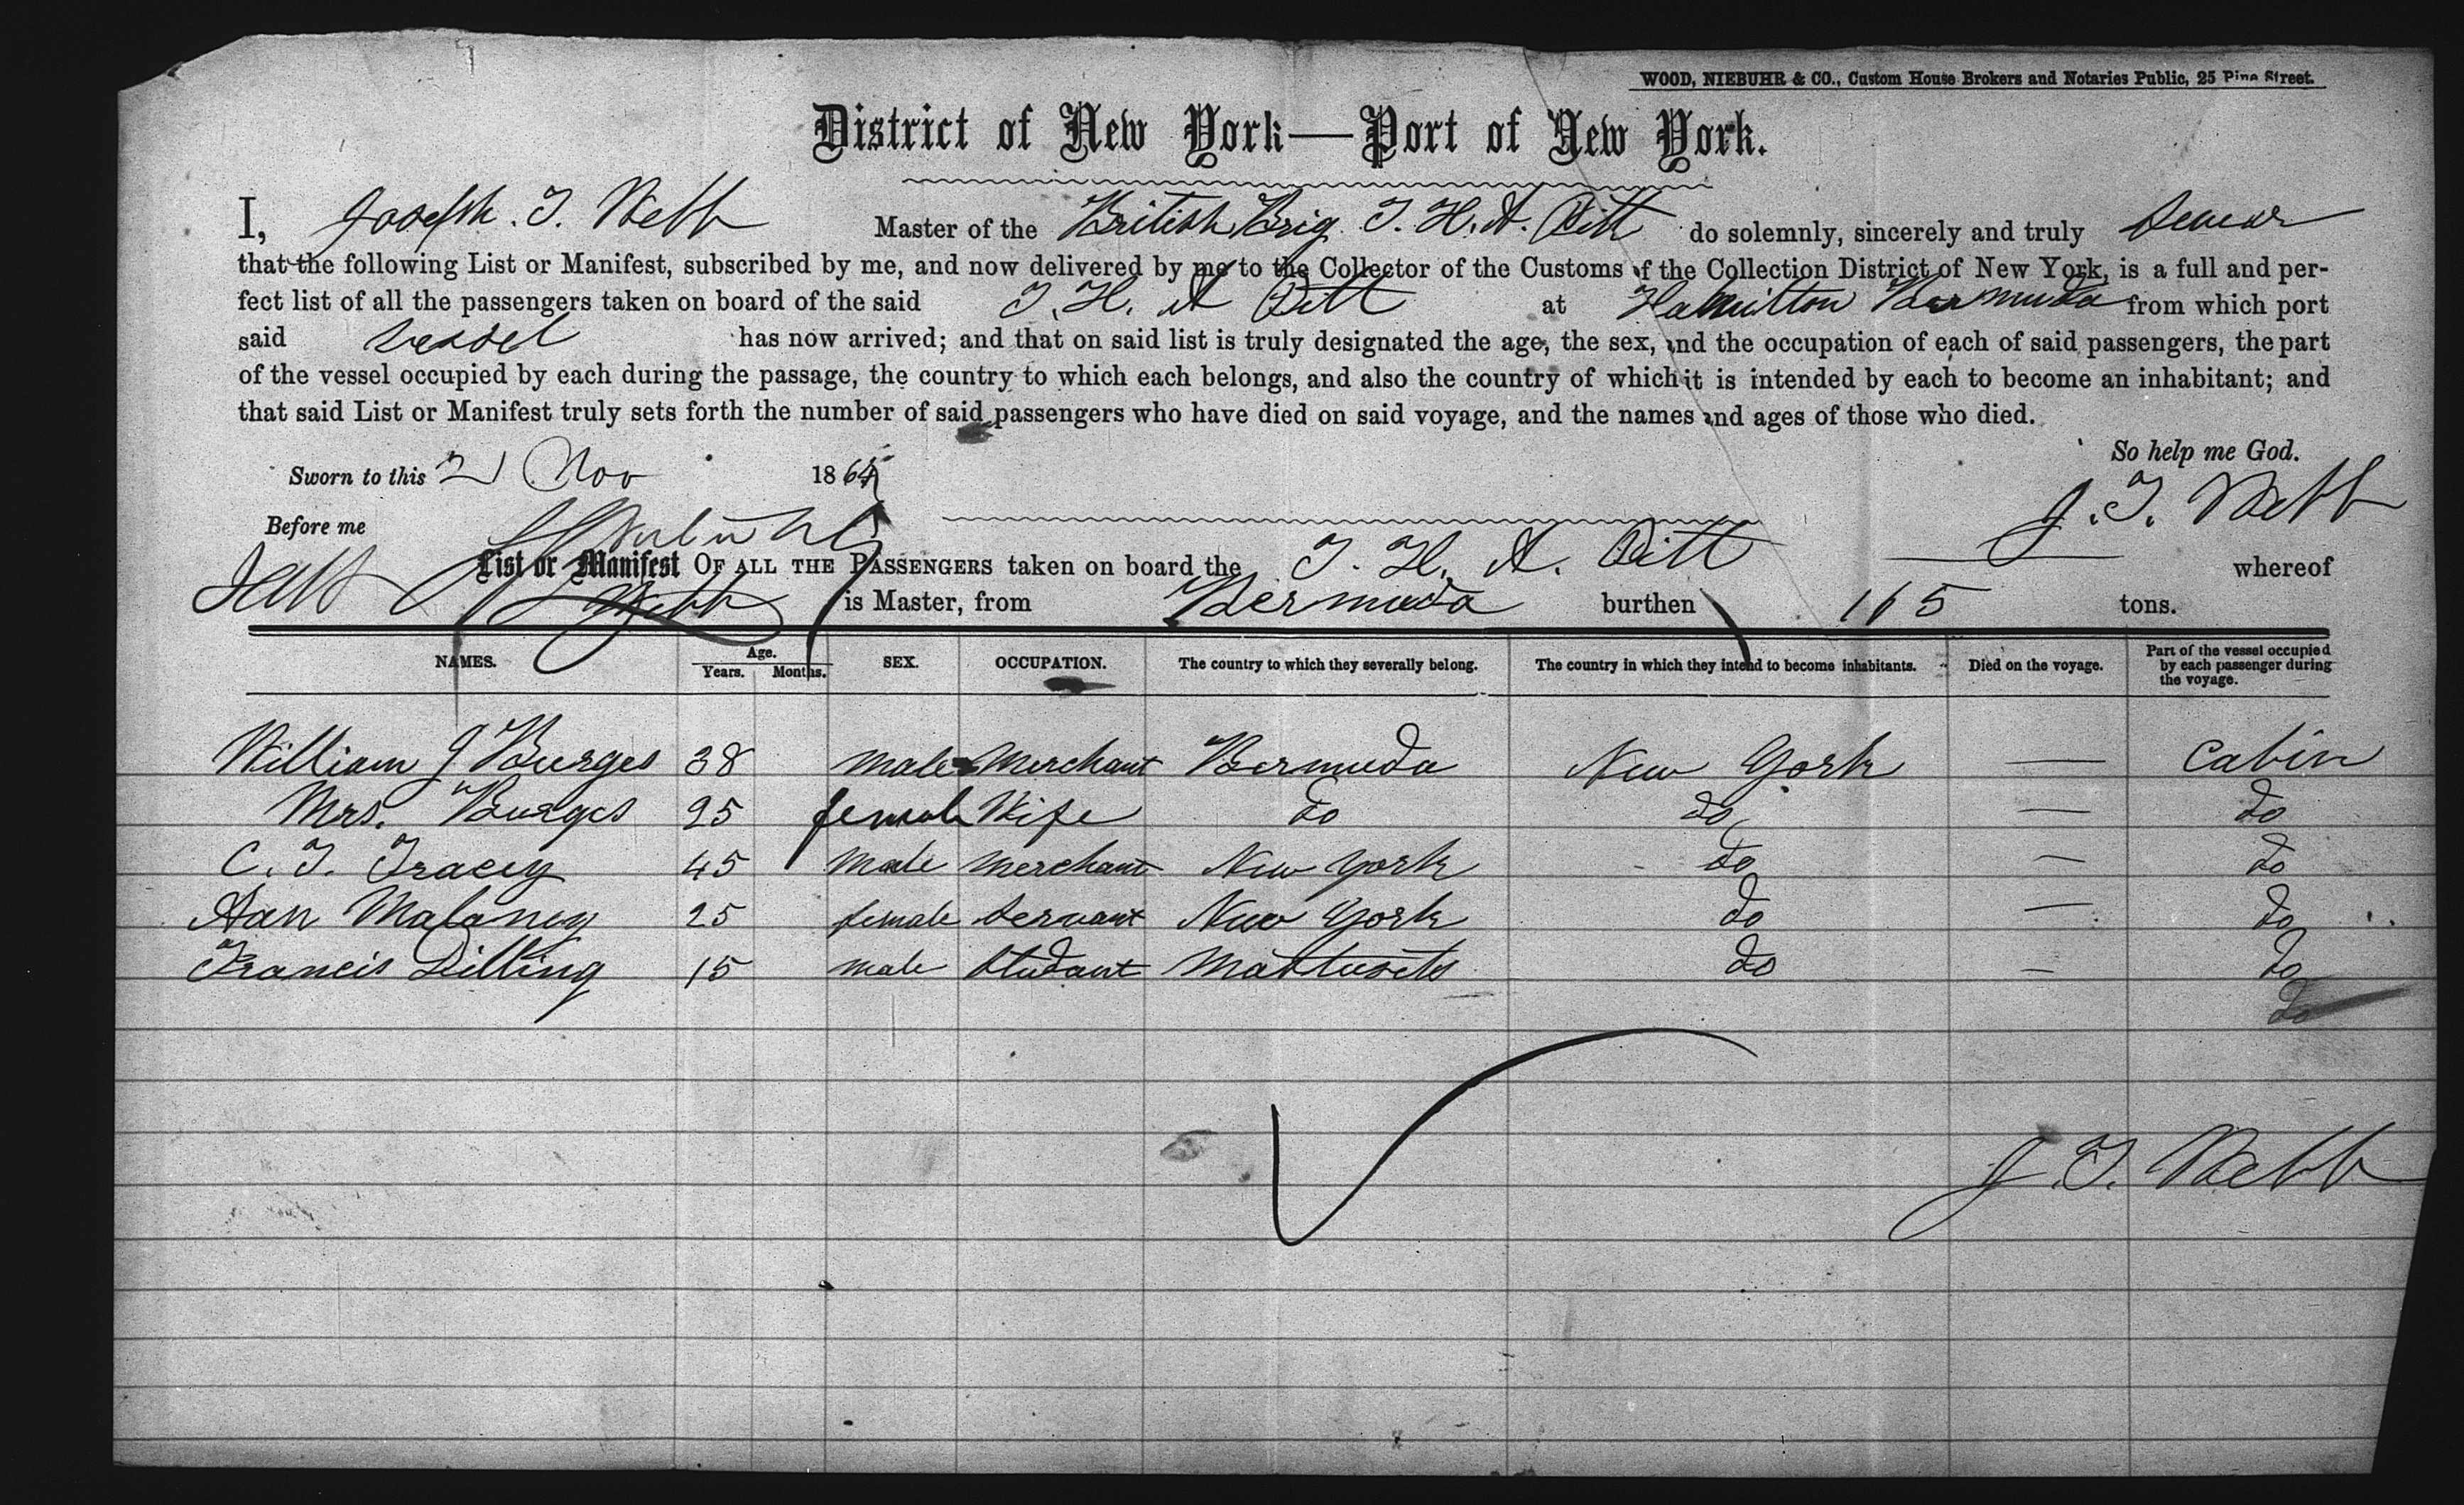 WOOD, NIEBUHR & CO., Custom House Brokers and Notaries Public, 25 Pine Street.
District of New York—Port of New York.
I, Joseph. T. Webb Master of the British Brig T. H. A. Pitt do solemnly, sincerely and truly Swear
that the following List or Manifest, subscribed by me, and now delivered by me to the Collector of the Customs of the Collection District of New York, is a full and per-
fect list of all the passengers taken on board of the said T. H. A Pitt at Hamilton Bermuda from which port
said vessel has now arrived; and that on said list is truly designated the age, the sex, and the occupation of each of said passengers, the part
of the vessel occupied by each during the passage, the country to which each belongs, and also the country of which it is intended by each to become an inhabitant; and
that said List or Manifest truly sets forth the number of said passengers who have died on said voyage, and the names and ages of those who died.
So help me God.
Sworn to this 21 Nov 1865
J. T. Webb
Before me
List or Manifest OF ALL THE PASSENGERS taken on board the T. H. A. Pitt whereof
Webb is Master, from Bermuda burthen 165 tons.
NAMES. Age. Years. Months. SEX. OCCUPATION. The country to which they severally belong. The country in which they intend to become inhabitants. Died on the voyage. Part of the vessel occupied by each passenger during the voyage.
William J Burges 38 male Merchant Bermuda New York — Cabin
Mrs. Burges 25 female Wife do do — do
C. T. Tracey 45 male merchant New York do — do
Ann Maloney 25 female Servant New York do — do
Francis Dilling 15 male Student do — do
do
J. T. Webb